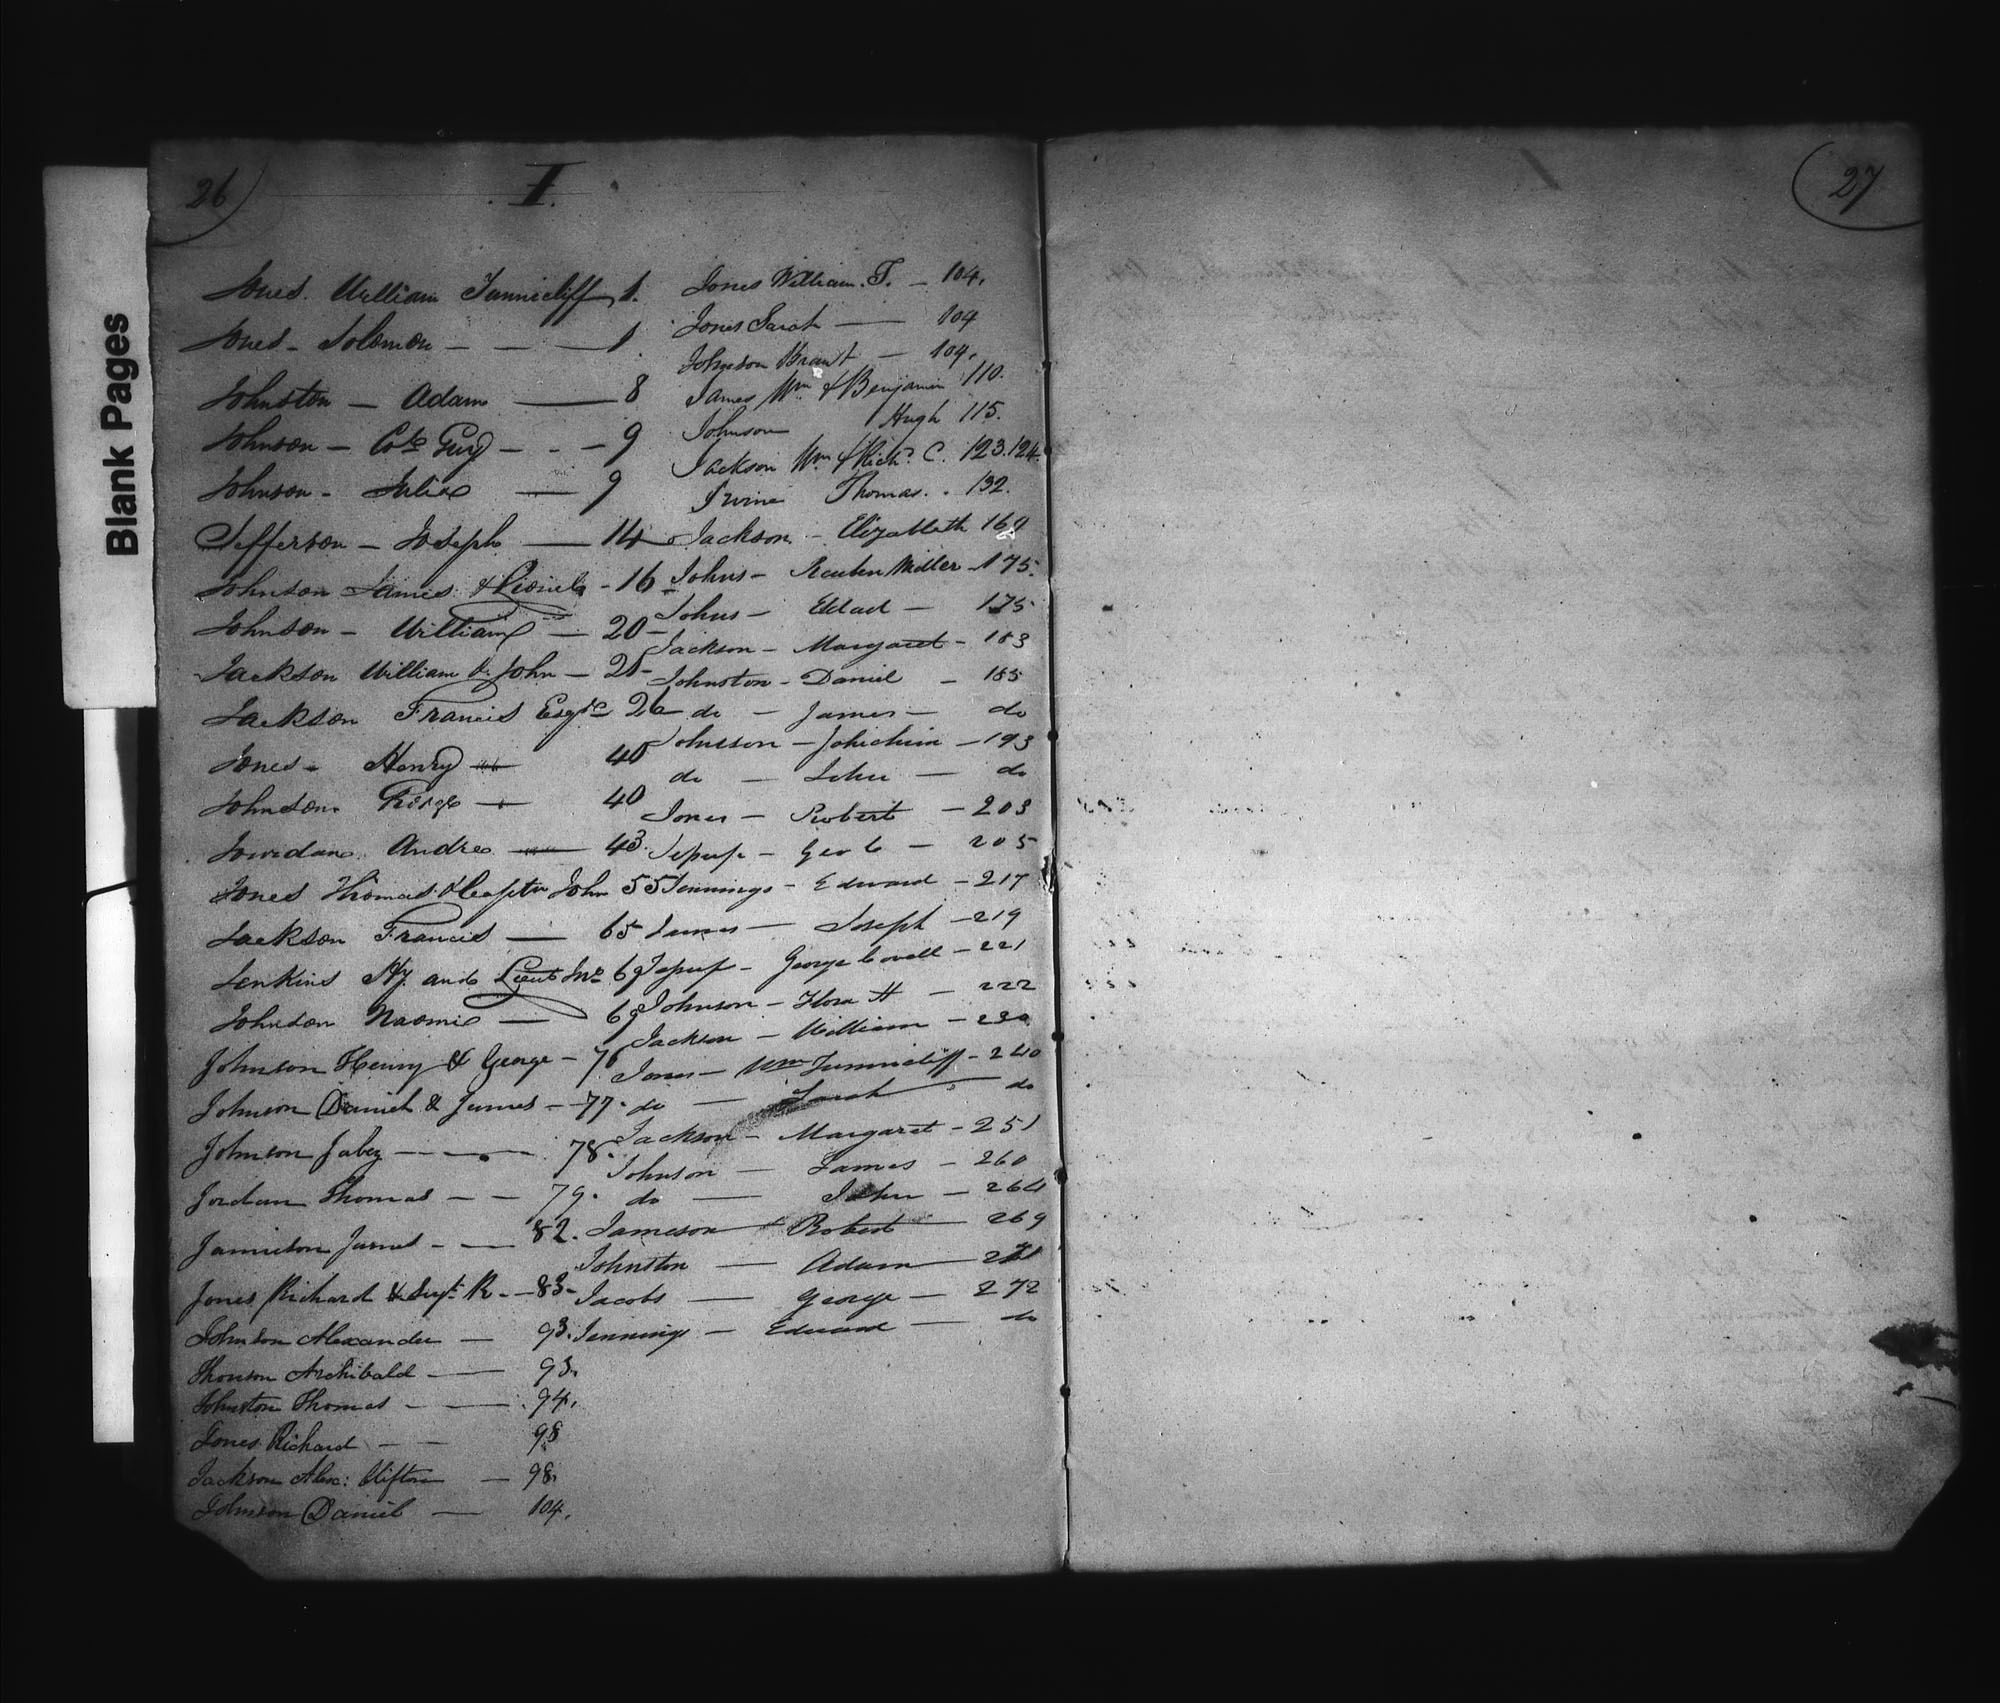 26
I.
27
Blank Pages
Jones. William Tunnicliff 1.
Jones - Solomon - - — 1
Johnston — Adam — 8
Johnson — Colo Guy - - - 9
Johnson - Julia — 9
Jefferson — Joseph — 14
Johnson James & Lionel - 16
Johnson — William — 20
Jackson William & John — 20
Jackson Francis Esqre 26
Jones - Henry — 40
Johnson George — 40
Jourdan Andre — 43
Jones Thomas & Captn John 55
Jackson Francis — 65
Jenkins Hy. and Lieut Jno 69
Johnson Naomi — 69
Johnson Henry & George - 76
Johnson Daniel & James - 77.
Johnson Jabez — 78.
Jordan Thomas — — 79.
Jamieson James - — 82.
Jones Richard & Sergt. R. - 83
Johnson Alexander — 93.
Thonson Archibald — 93.
Johnston Thomas - — 94.
Jones Richard - - 98
Jackson Alex: Clifton — 98.
Johnson Daniel — 104.
Jones William. T. — 104.
Jones Sarah — 104
Johnson Brant — 104.
James Wm & Benjamin 110.
Johnson Hugh 115.
Jackson Wm & Richd. C. 123.124.
Irvine Thomas. . 132.
Jackson - Elizabeth 169
Johns — Reuben Miller - 175.
Johns — Eldad — 175
Jackson - Margaret - 183
Johnston - Daniel — 185
do — James — do
Johnson — — 193
do — John — do
Jones — Robert — 203
Jessup — Geo C — 205
Jennings - Edward - 217
James — Joseph — 219
Jessup - George Covell - 221
Johnson — Flora H — 222
Jackson — William — 230
Jones — Wm Tunnicliff - 240
do — Sarah do
Jackson — Margaret - 251
Johnson — James — 260
do — John — 264
Jameson — Robert — 269
Johnston — Adam — 271
Jacobs — George — 272
Jennings — Edward — do